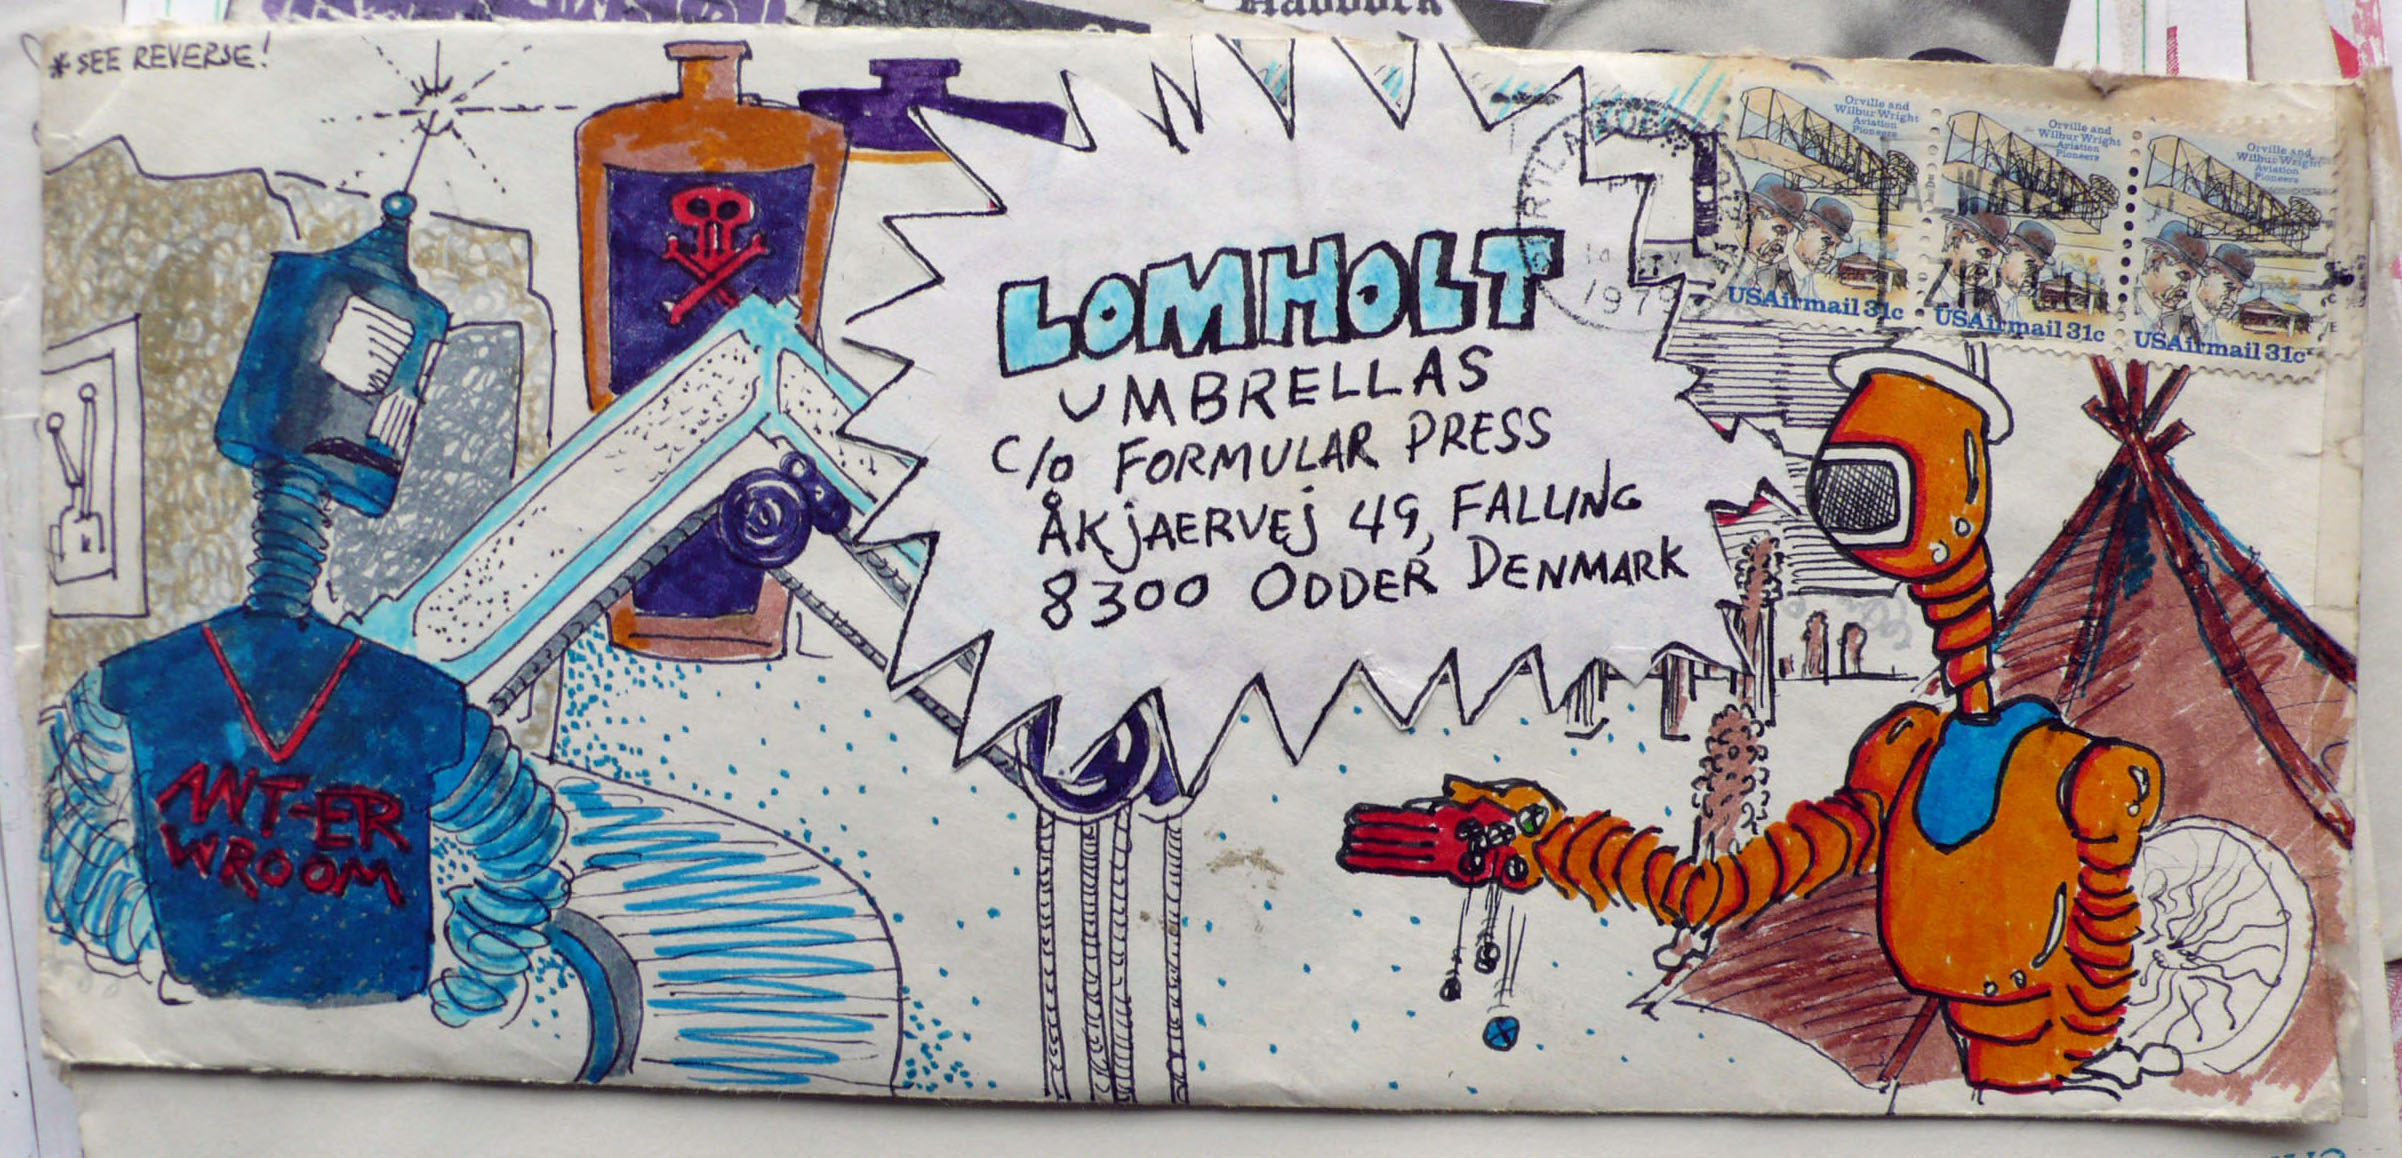 Haddock
* SEE REVERSE!
Orville and
Wilbur Wright
Aviation
Pioneers
USAirmail 31c
Orville and
Wilbur Wright
Aviation
Pioneers
USAirmail 31c
Orville and
Wilbur Wright
Aviation
Pioneers
USAirmail 31c
1979
LOMHOLT
UMBRELLAS
C/O FORMULAR PRESS
ÅKJAERVEJ 49, FALLING
8300 ODDER DENMARK
ANT-ER
WROOM